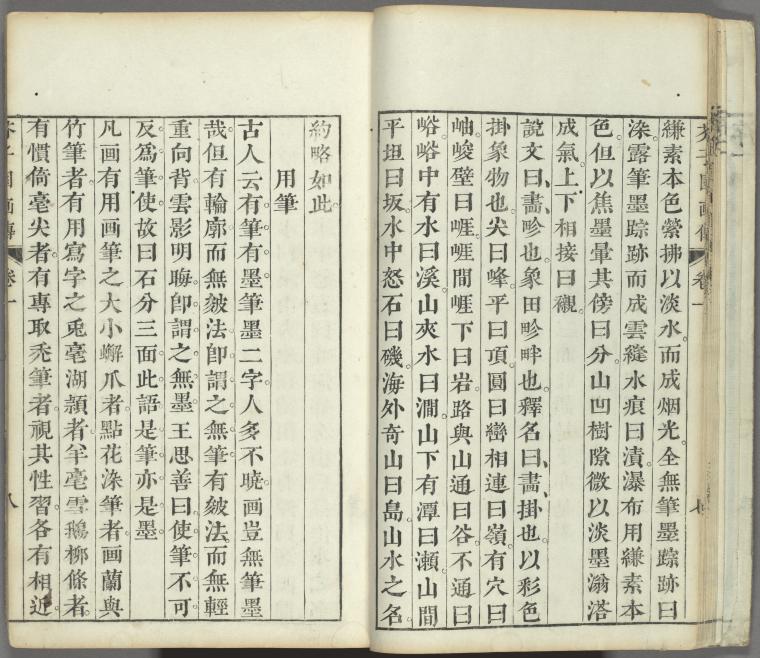 芥子園画傳 卷一 七
縑素本色縈拂以淡水而成烟光全無筆墨踪跡曰
染露筆墨踪跡而成雲縫水痕曰漬瀑布用縑素本
色但以焦墨暈其傍曰分山凹樹隙微以淡墨滃溚
成氣上下相接曰襯
說文曰畵畛也象田畛畔也釋名曰畵掛也以彩色
掛象物也尖曰峰平曰頂圓曰巒相連曰嶺有穴曰
岫峻壁曰崕崕間崕下曰岩路與山通曰谷不通曰
峪峪中有水曰溪山夾水曰澗山下有潭曰瀨山間
平坦曰坂水中怒石曰磯海外奇山曰島山水之名
約略如此
用筆
古人云有筆有墨筆墨二字人多不曉画豈無筆墨
哉但有輪廓而無皴法卽謂之無筆有皴法而無輕
重向背雲影明聮卽謂之無墨王思善曰使筆不可
反爲筆使故曰石分三面此語是筆亦是墨
凡画有用画筆之大小蠏爪者點花染筆者画蘭與
竹筆者有用寫字之兎毫湖頴者羊毫雪鵝柳條者
有慣倚毫尖者有專取秃筆者視其性習各有相近
芥子園画傳 卷一 八